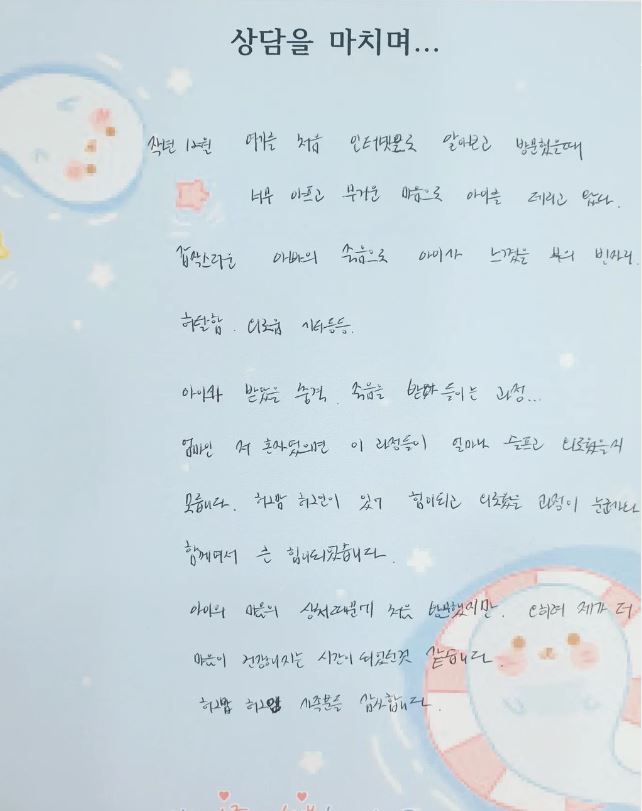 상담을 마치며...
작년 12월 여기를 처음 인터넷으로 알아보고 방문했을때
너무 아프고 무거운 마음으로 아이를 데리고 왔다.
갑작스러운 아빠의 죽음으로 아이가 느꼈을 부의 빈자리.
허탈함. 외로움 기타등등.
아이가 받았을 충격. 죽음을 받아들이는 과정...
엄마인 저 혼자였으면 이 과정들이 얼마나 슬프고 외로웠을지
모릅니다. 허그맘 허그인이 있어 힘이되고 외로웠을 과정이
함께여서 큰 힘이되었습니다.
아이의 마음의 상처때문에 처음 방문했지만. 오히려 제가 더
마음이 건강해지는 시간이 되었던것 같습니다.
허그맘 허그인 가족분들 감사합니다.